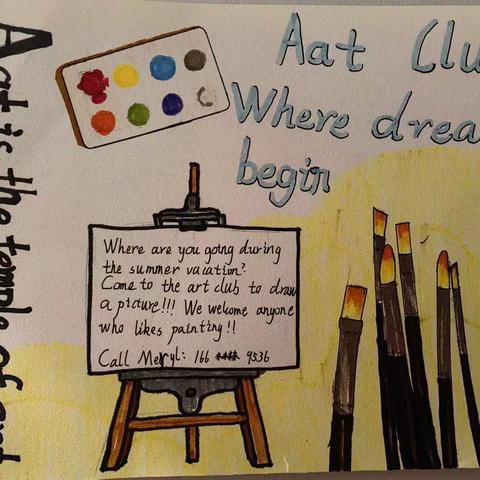 Aat Clu
Where drea
begin
Aat is the temple of
Where are you going during
the summer vacation?
Come to the art club to draw
a picture!!! We welcome anyone
who likes painting!!
Call Meryl: 166 **** 9536